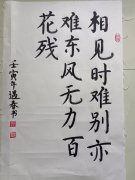 相见时难别亦
难东风无力百
花残
壬寅年遇春书